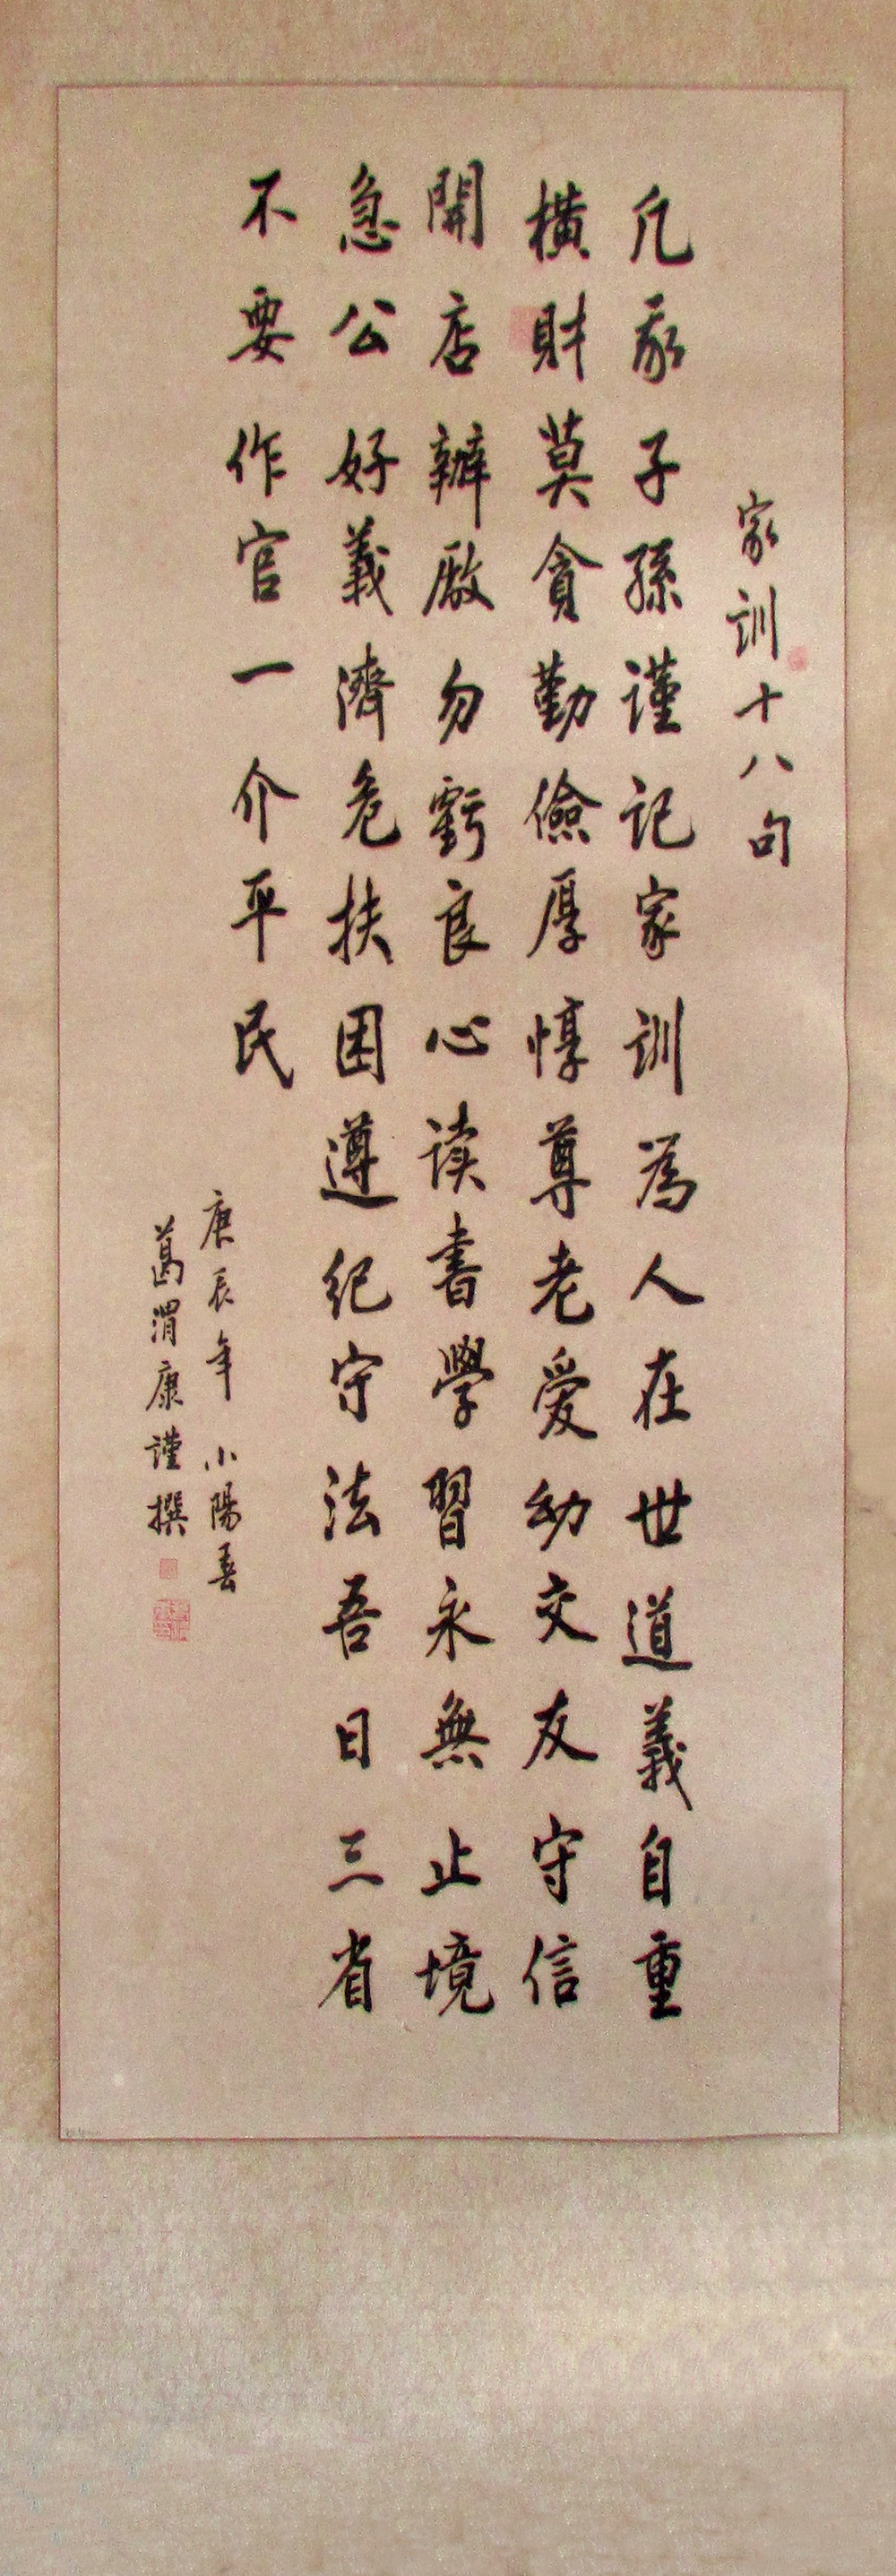 家訓十八句
凡我子孫謹記家訓為人在世道義自重
橫財莫貪勤儉厚惇尊老爱幼交友守信
開店辦廠勿虧良心读書學習永無止境
急公好義濟危扶困遵纪守法吾日三省
不要作官一介平民
庚辰年小陽春
葛渭康謹撰